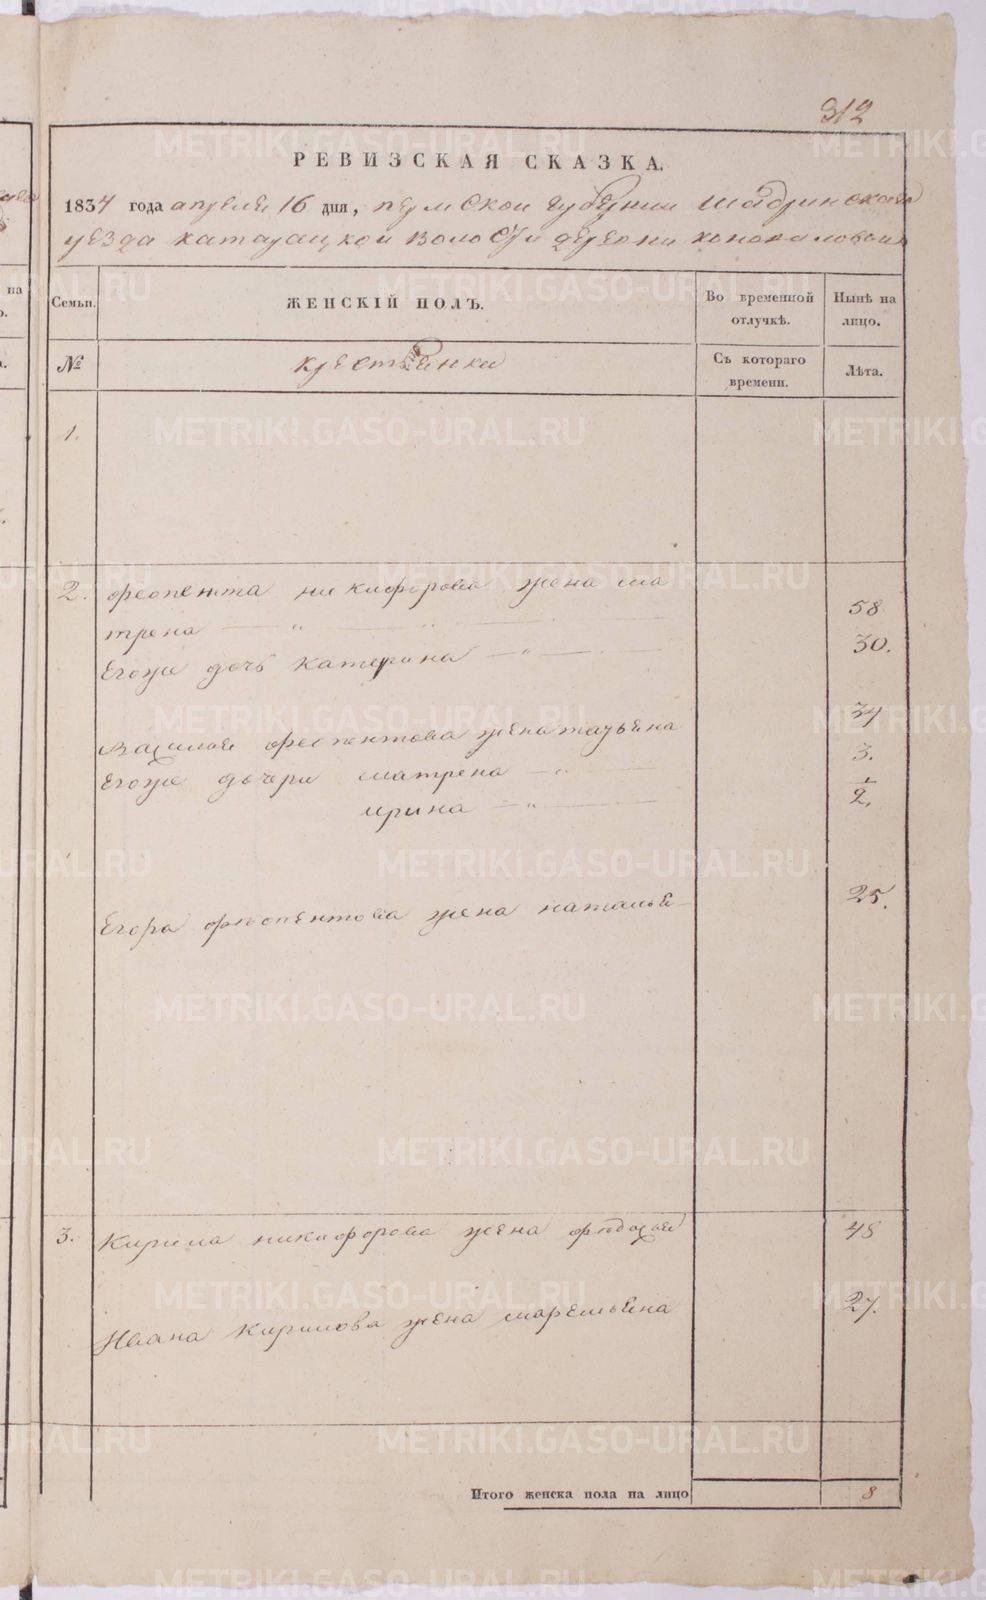 312
РЕВИЗСКАЯ СКАЗКА.
1834 года апреля 16 дня, пермской губернии шадринскаго
уезда катауацкой волости деревни коноваловой
Семьи. ЖЕНСКІЙ ПОЛЪ. Во временной отлучкѣ. Нынѣ на лицо.
№ крестьянки Съ котораго времени. Лѣта.
1.
2. феопента никифорова жена ма
трена — „ — „ — 58
Егоже дочь катерина — „ — 30.
Василья феопентова жена татьяна 34
Егоже дочери матрена — „ — 3.
ирина — „ — 1/2.
Егора феопентова жена наталья — 25.
3. Кирила никифорова жена федосья 48
Ивана Кирилова жена маремьяна 27.
Итого женска пола на лицо 8
METRIKI.GASO-URAL.RU